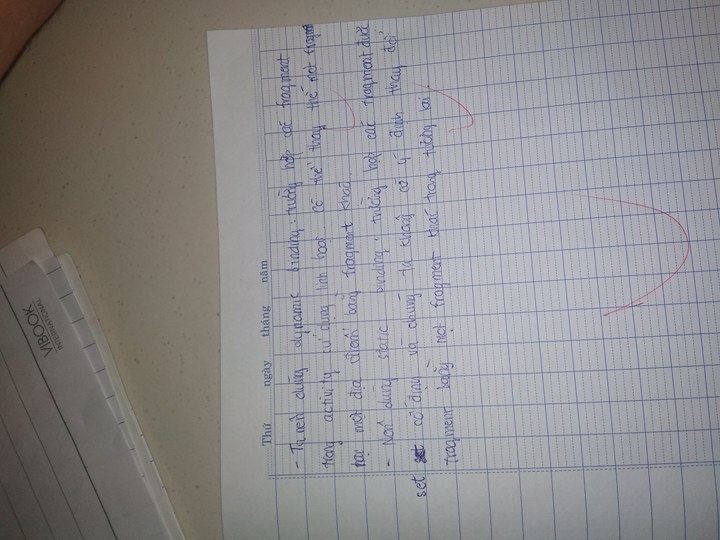 VIBOOK
INTERNATIONAL
Thứ ngày tháng năm
- Ta nên dùng dynamic binding trường hợp các fragment
trong activity sử dụng linh hoạt. Có thể thay thế một fragment
tại một địa điểm bằng fragment khác.
- Nên dùng static binding trường hợp các fragment được
set cố định và chúng ta không có ý định thay đổi
fragment bằng một fragment khác trong tương lai.